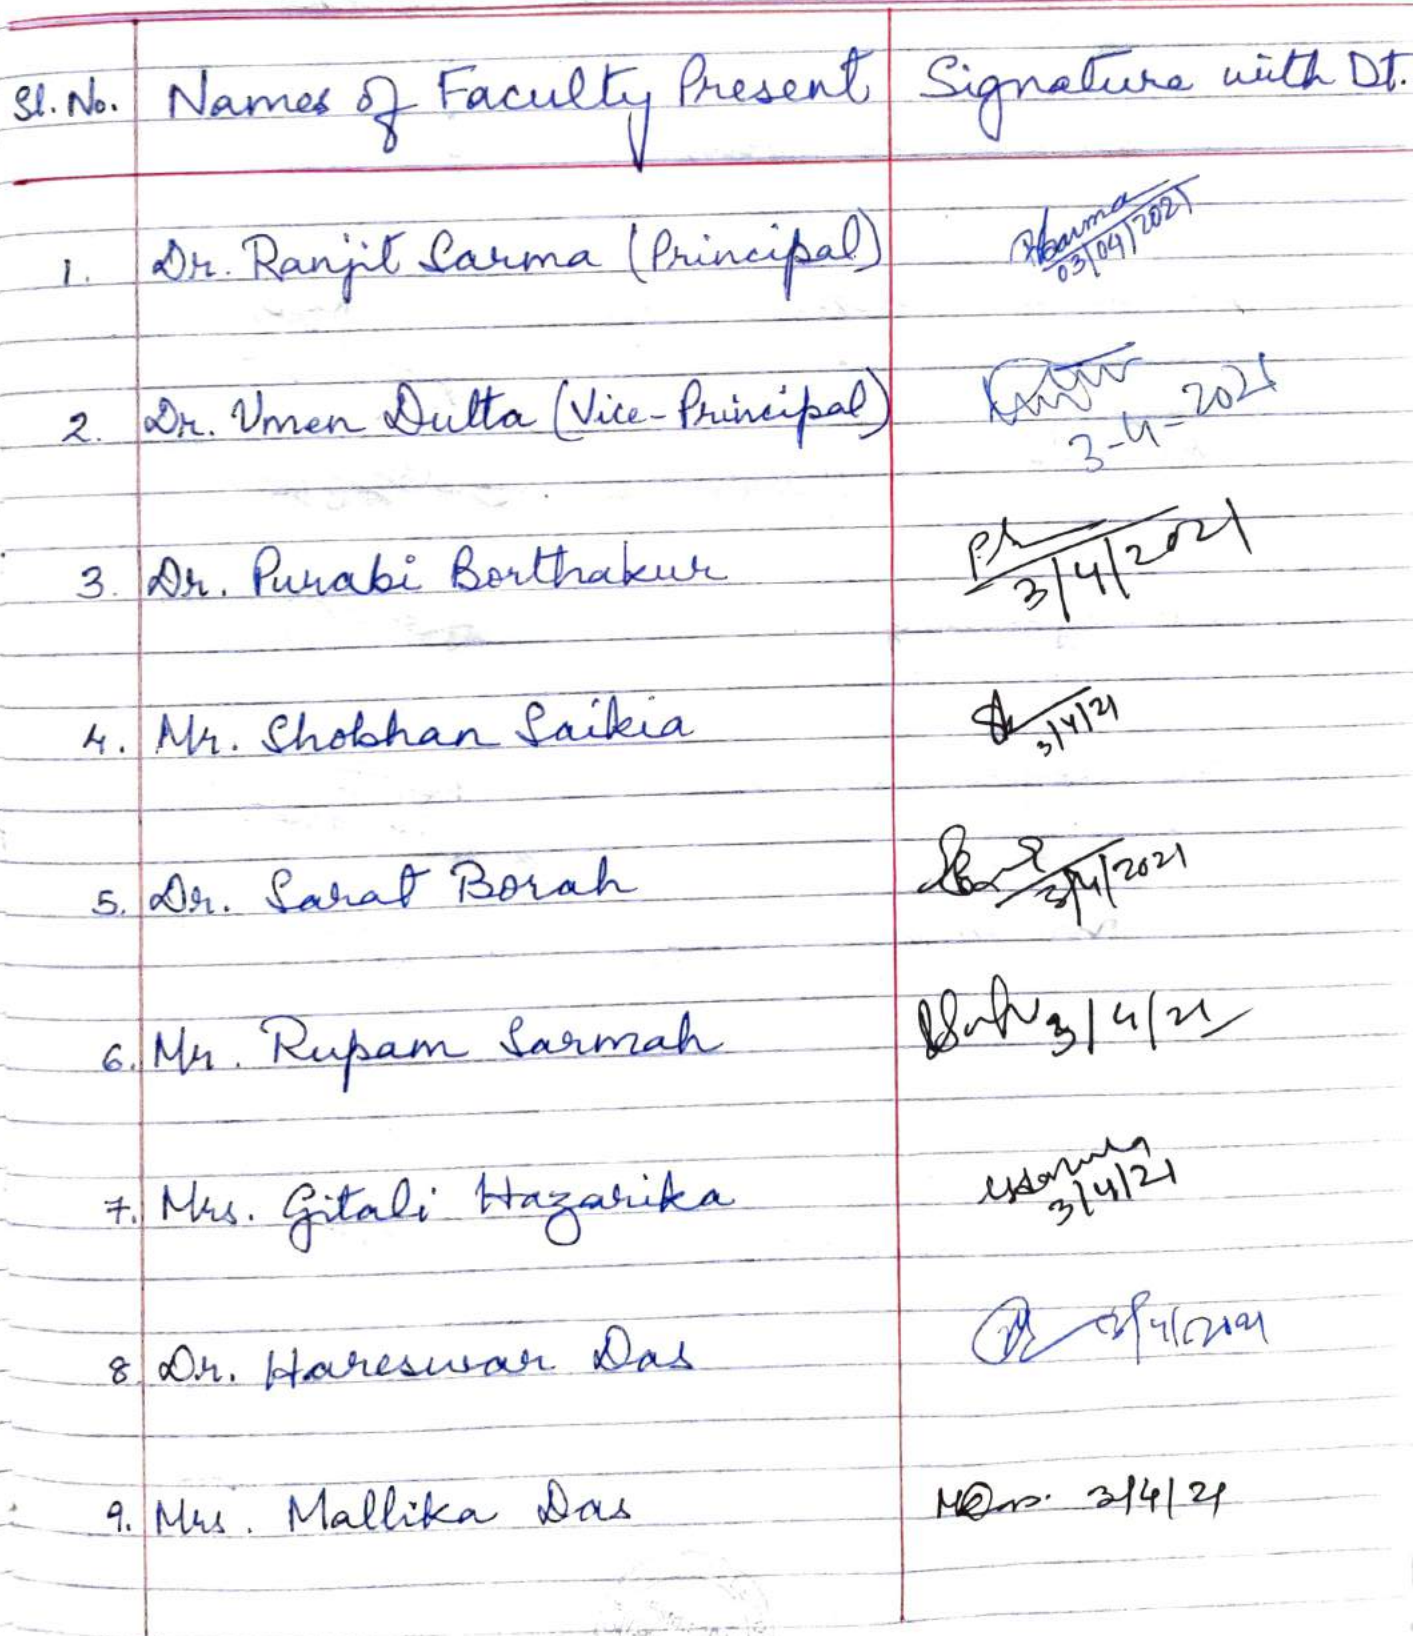 Sl. No. Names of Faculty Present Signature with Dt.
1. Dr. Ranjit Sarma (Principal) RSarma
03/04/2021
2. Dr. Umen Dutta (Vice-Principal)
3-4-2021
3. Dr. Purabi Borthakur
3/4/2021
4. Mr. Shobhan Saikia
3/4/21
5. Dr. Sarat Borah
3/4/2021
6. Mr. Rupam Sarmah 3/4/21
7. Mrs. Gitali Hazarika
3/4/21
8. Dr. Hareswar Das 3/4/2021
9. Mrs. Mallika Das MDas. 3/4/21